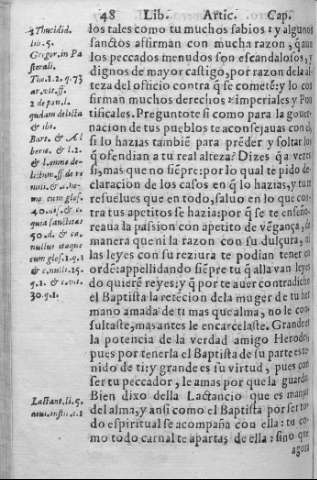 48 Lib. Artic. Cap.
los tales como tu muchos sabios: y algunos
sanctos affirman con mucha razon, q̃ aun
los peccados menudos son escandalosos, y
dignos de mayor castigo, por razon de la al
teza del officio contra q̃ se comete: y lo con
firman muchos derechos imperiales y Pon
tificales. Preguntote si como para la gouer
nacion de tus pueblos te aconsejauas con el,
si lo hazias tambien para prẽder y soltar los
q̃ ofendian a tu real alteza? Dizes q̃ a vezes
si, mas que no siẽpre: por lo qual te pido de
claracion de los casos en q̃ lo hazias, y tu te
resuelues que en todo, saluo en lo que con
tra tus apetitos se hazia: por q̃ se te enseño
reaua la passion con apetito de vẽgança, de
manera que ni la razon con su dulçura, ni
las leyes con su reziura te podian tener en
ordẽ: appellidando siẽpre tu q̃ alla van leyes
do quierẽ reyes: y q̃ por te auer contradicho
el Baptista la retẽcion dela muger de tu her
mano amada de ti mas que alma, no le con
sultaste; mas antes le encarcelaste. Grande es
la potencia de la verdad amigo Herodes,
pues por tenerla el Baptista de su parte es te
nido de ti: y grande es su virtud, pues con
ser tu peccador, le amas por que la guarda.
Bien dixo della Lactancio que es manjar
del alma, y ansi como el Baptista por ser to
do espiritual se acompaña con ella: tu co
mo todo carnal te apartas de ella: sino que
agora
Thucidid.
lib. 5.
Gregor. in Pa
storali.
2 de pœn. l.
& ibi.
40. di. &
50. d. & ca.
& c. nulli. 15.
9. 1. & c. vit.
30. q. 1.
Lactant. li. 5.